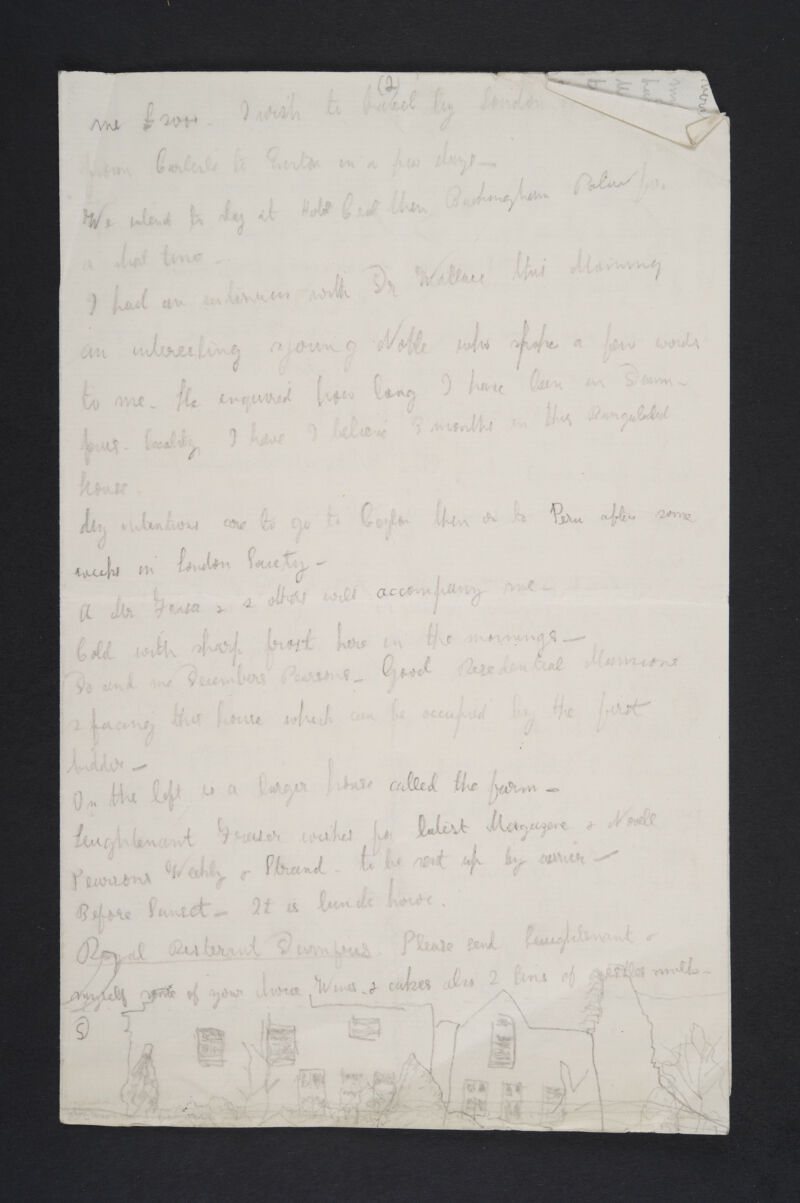 (2)
me £2000. I wish to travel by London
from Carlisle to Euston in a few days—
We intend to stay at Hotel Cecil then Buckingham Palace for
a short time—
I had an interview with Dr Wallace this Morning
an interesting young Noble who spoke a few words
to me. He enquired how long I have been in Dum-
fries. locality I have I believe 3 months in this
house.
My intentions are to go to Ceylon then on to Peru after some
weeks in London Society—
A Mr Fraser & 2 others will accompany me—
Cold with sharp frost here in the mornings—
Do send me Decembers Pearsons— Good Residential Mansions
2 facing this house which can be occupied by the first
bidder—
On the left is a larger house called the farm—
Leughtenant Fraser wishes for latest Magazene & Novell
Pearsons Weekly & Strand. to be sent up by carrier—
Before Sunset— It is lunch houre.
Royal Dumfries Please send Leughtenant &
myself some of your choice Wines & cakes also 2 tins of milk—